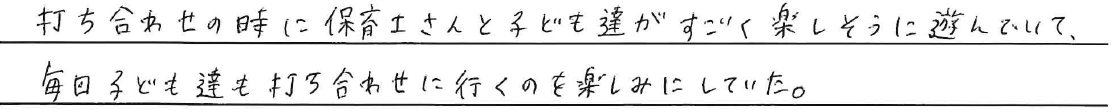 打ち合わせの時に保育士さんと子ども達がすごく楽しそうに遊んでいて、
毎回子ども達も打ち合わせに行くのを楽しみにしていた。